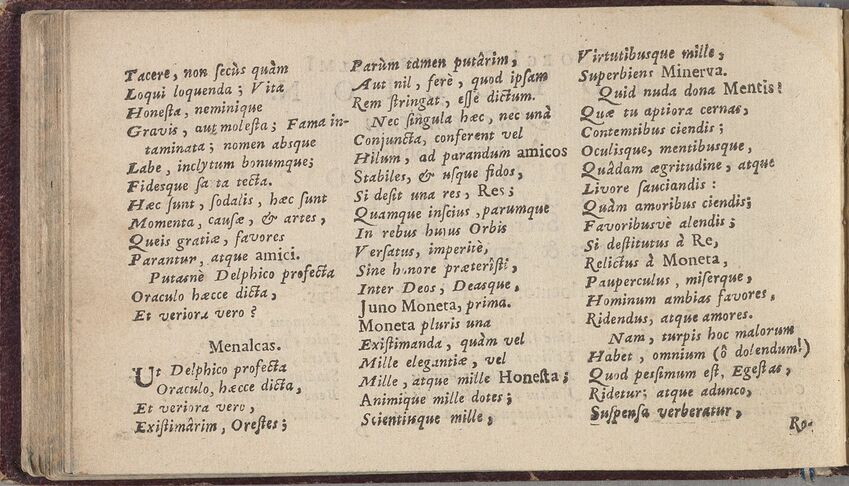 Tacere, non secùs quàm
Loqui loquenda; Vita
Honesta, neminique
Gravis, aut molesta; Fama in-
taminata; nomen absque
Labe, inclytum bonumque;
Fidesque sarta tecta.
Hæc sunt, sodalis, hæc sunt
Momenta, causæ, & artes,
Queis gratiæ, favores
Parantur, atque amici.
Putasnè Delphico profecta
Oraculo hæcce dicta,
Et veriora vero?
Menalcas.
Ut Delphico profecta
Oraculo, hæcce dicta,
Et veriora vero,
Existimârim, Orestes;
Parùm tamen putârim,
Aut nil, ferè, quod ipsam
Rem stringat, esse dictum.
Nec singula hæc, nec unà
Conjuncta, conferent vel
Hilum, ad parandum amicos
Stabiles, & usque fidos,
Si desit una res, Res;
Quamque inscius, parumque
In rebus hujus Orbis
Versatus, imperitè,
Sine honore præteristi,
Inter Deos, Deasque,
Juno Moneta, prima.
Moneta pluris una
Existimanda, quàm vel
Mille elegantiæ, vel
Mille, atque mille Honesta;
Animique mille dotes;
Scientiisque mille,
Virtutibusque mille,
Superbiens Minerva.
Quid nuda dona Mentis?
Quæ tu aptiora cernas,
Contemtibus ciendis;
Oculisque, mentibusque,
Quâdam ægritudine, atque
Livore sauciandis:
Quàm amoribus ciendis;
Favoribusvè alendis;
Si destitutus à Re,
Relictus à Moneta,
Pauperculus, miserque,
Hominum ambias favores,
Ridendus, atque amores.
Nam, turpis hoc malorum
Habet, omnium (ô dolendum!)
Quod pessimum est, Egestas,
Ridetur; atque adunco,
Suspensa verberatur,
Ro-